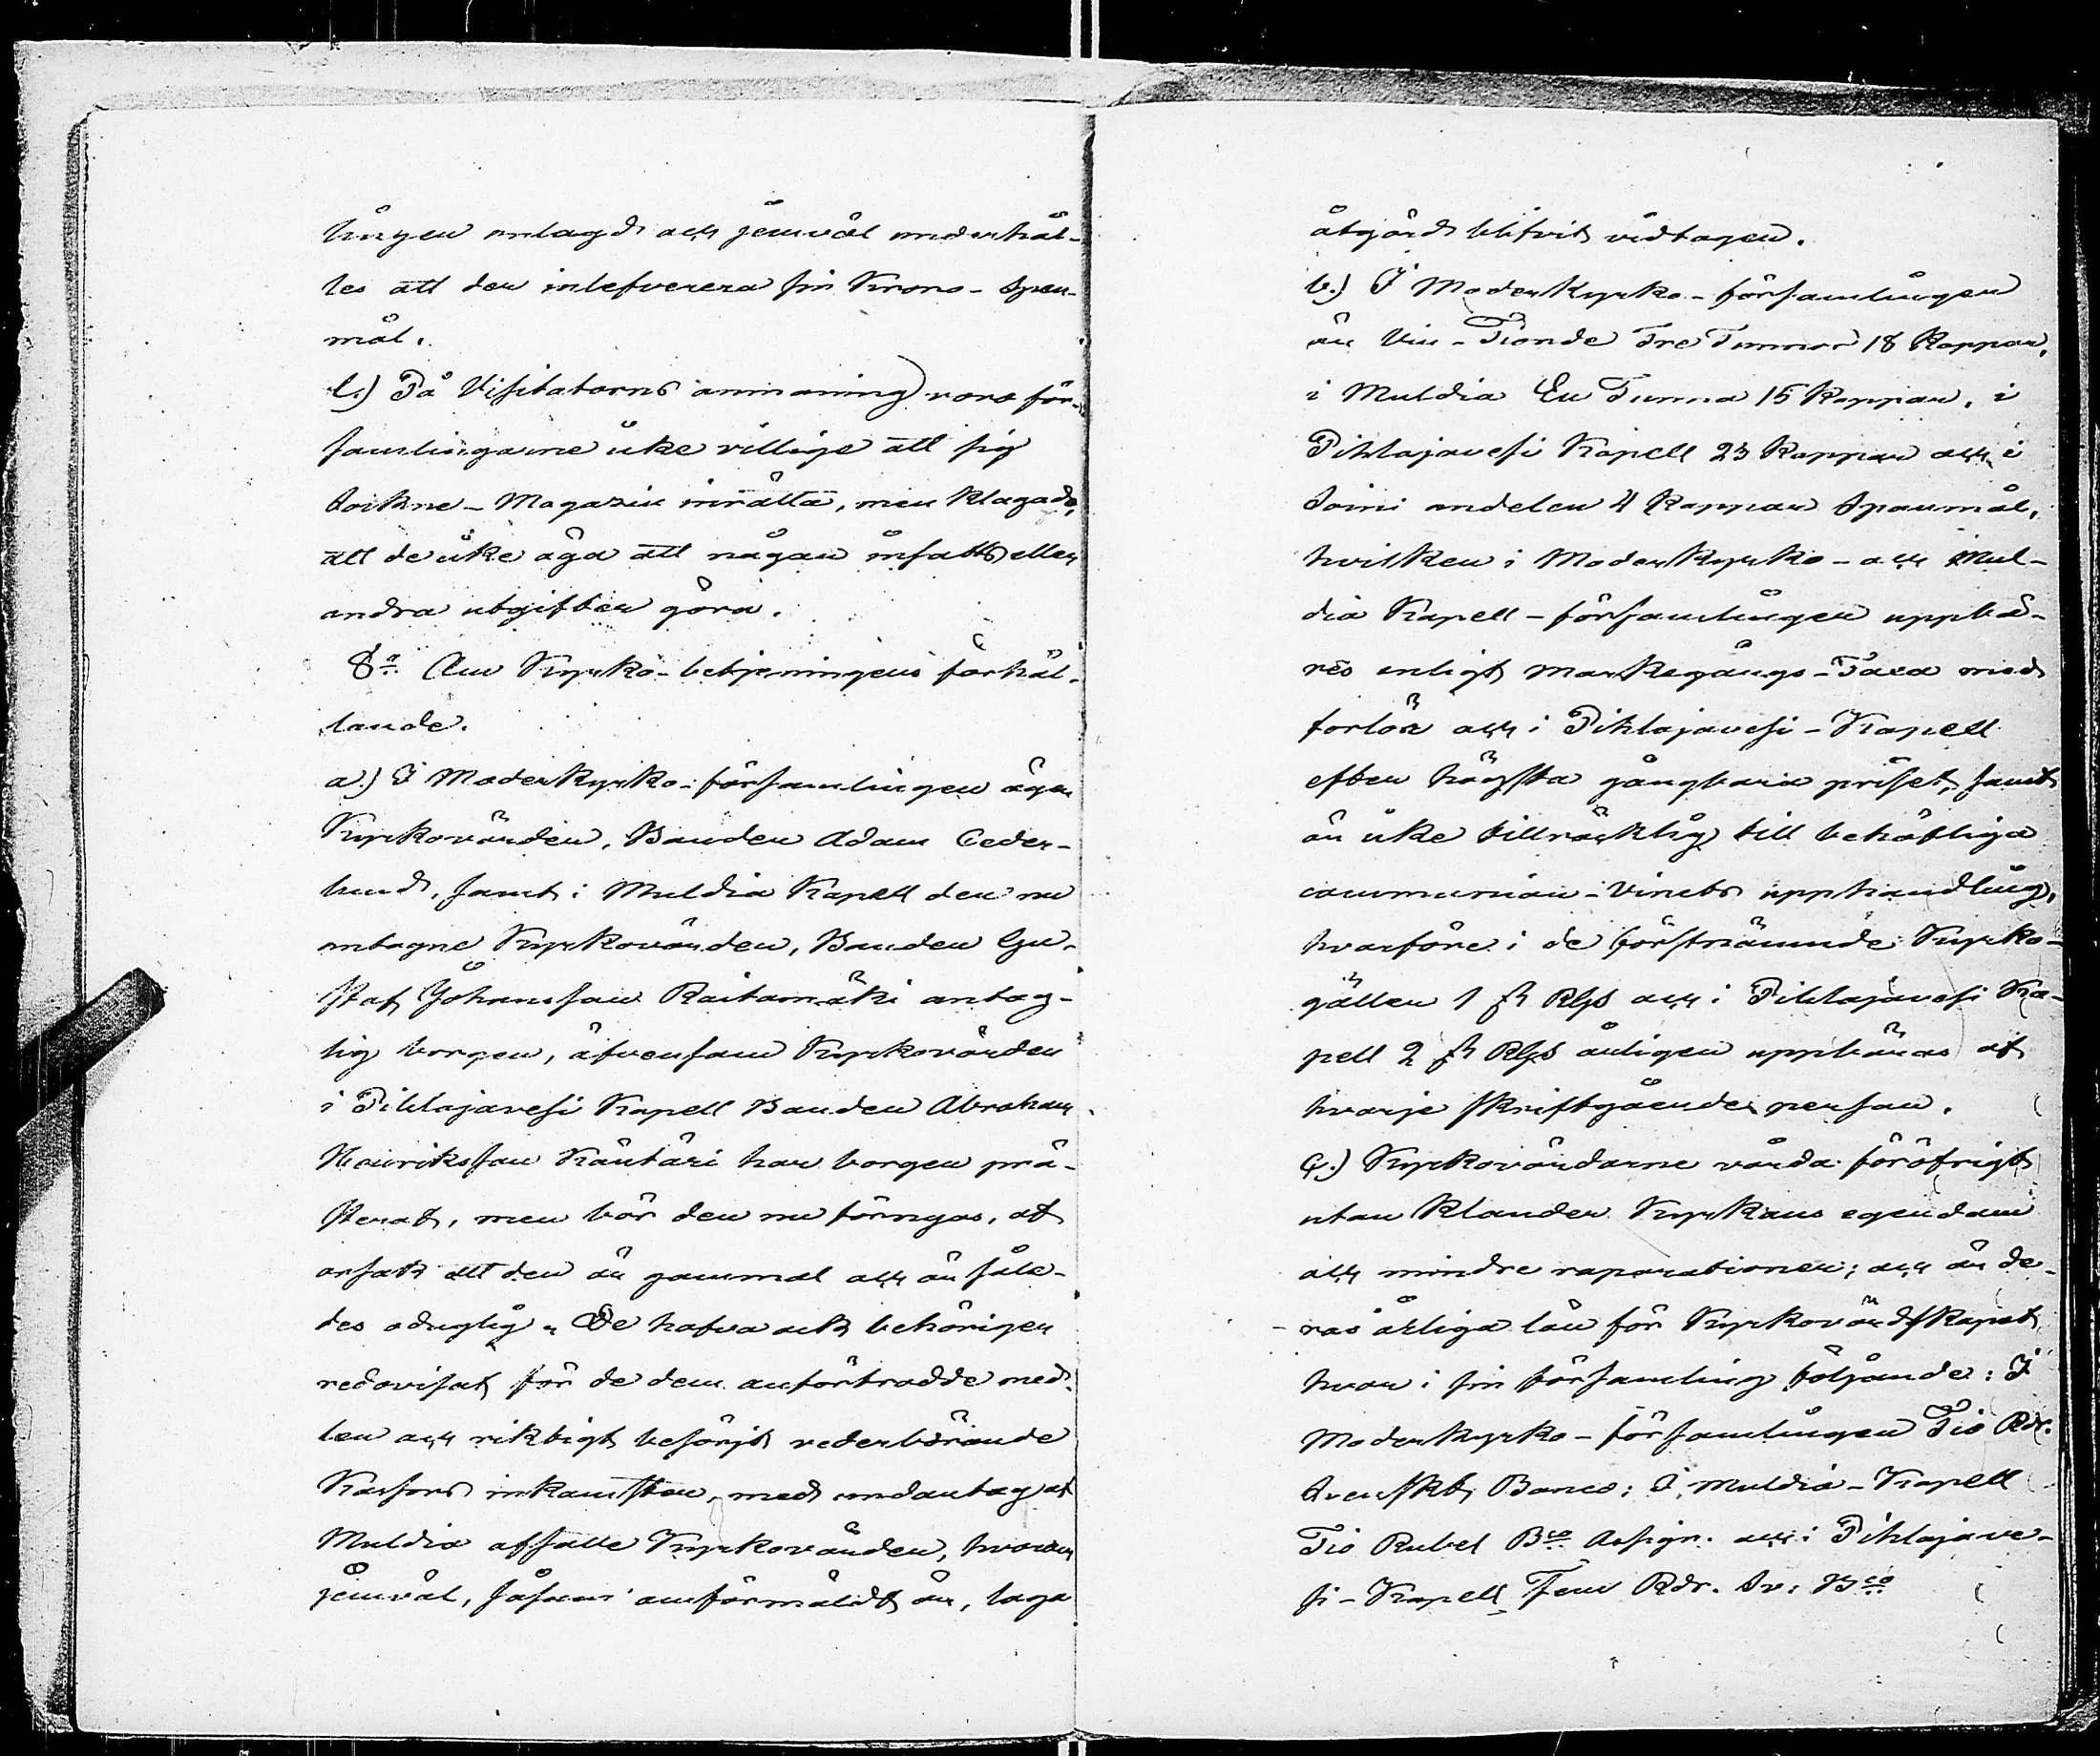 lingen anlagd och jemväl underhål-
les att der inlefverera sin Krono-Span-
mål.
l.) På Visitatorns anmaning voro för-
samlingarne icke villige att sig
Sockne-Magazin inrätta, men klagade,
att de icke äga att någon insatts eller
andra utgifter göra.
8:o Om Kyrko-betjeningens förhål-
lande.
a.) I Moderkyrko-församlingen äger
Kyrkovärden, Bonden Adam Ceder-
lund, samt i Muldia Kapell den nu
antagne Kyrkovärden, Bonden Gu-
staf Johansson Raitamäki antag-
lig borgen, äfvensom Kyrkovärden
i Pihlajavesi Kapell Bonden Abraham
Henriksson Käntäri har borgen præ-
sterat, men bör den nu förnyas, af
orsak att den är gammal och är såle-
des oduglig. De hafva ock behörigen
redovisat för de dem anförtrodde med-
len och riktigt besörjt vederbörande
Kassors inkomster, med undantag af
Muldia aflidne Kyrkovärden, hvarom
jemväl, såsom anförmäldt är, laga
åtgärd blifvit vidtagen.
b.) I Moderkyrko-församlingen
är Vin-Tionde Tre Tunnor 18 Kappar,
i Muldia En Tunna 15 Kappar, i
Pihlajavesi Kapell 23 Kappar och i
Soini andelen 4 Kappar Spanmål,
hvilken i Moderkyrko- och Mul-
dia Kapell-församlingen uppbä-
res enligt Markegångs-Taxa med
forlön och i Pihlajavesi-Kapell
efter högsta gångbara priset, samt
är icke tillräcklig till behöfliga
communion-Vinets upphandling,
hvarföre i de förstnämnde Kyrko-
gällen 1 ß Rgs och i Pihlajavesi Ka-
pell 2 ß Rgs årligen uppbäras af
hvarje skriftgående person.
c.) Kyrkovärdarne vårda föröfrigt
utan klander Kyrkans egendom
och mindre reparationer; och är de-
ras årliga lön för Kyrkovärdskapet
hvar i sin församling följande: I
Moderkyrko-församlingen Tio Rdr.
Svenskt Banco; I Muldia-Kapell
Tio Rubel Bco Assign. och i Pihlajave-
si-Kapell Fem Rdr. Sv: Bco